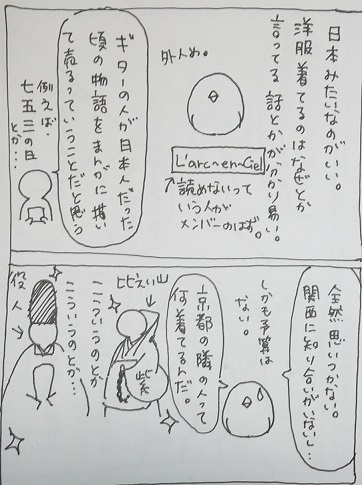 日本みたいなのがいい。
洋服着てるのはなぜとか
言ってる話とかが分かり易い。
外人め。
L'arc~en~Ciel
↑読めないって
いう人が
メンバーのはず。
ギターの人が日本人だった
頃の物語をまんがに描い
て売るっていうことだと思う
例えば、
七五三の日
とか…
全然思いつかない。
関西に知り合いがいないし…
しかも予算は
ない。
京都の隣の人って
何着てるんだ。
比えい山
紫
こういうのとか
こういうのとか…
役人→